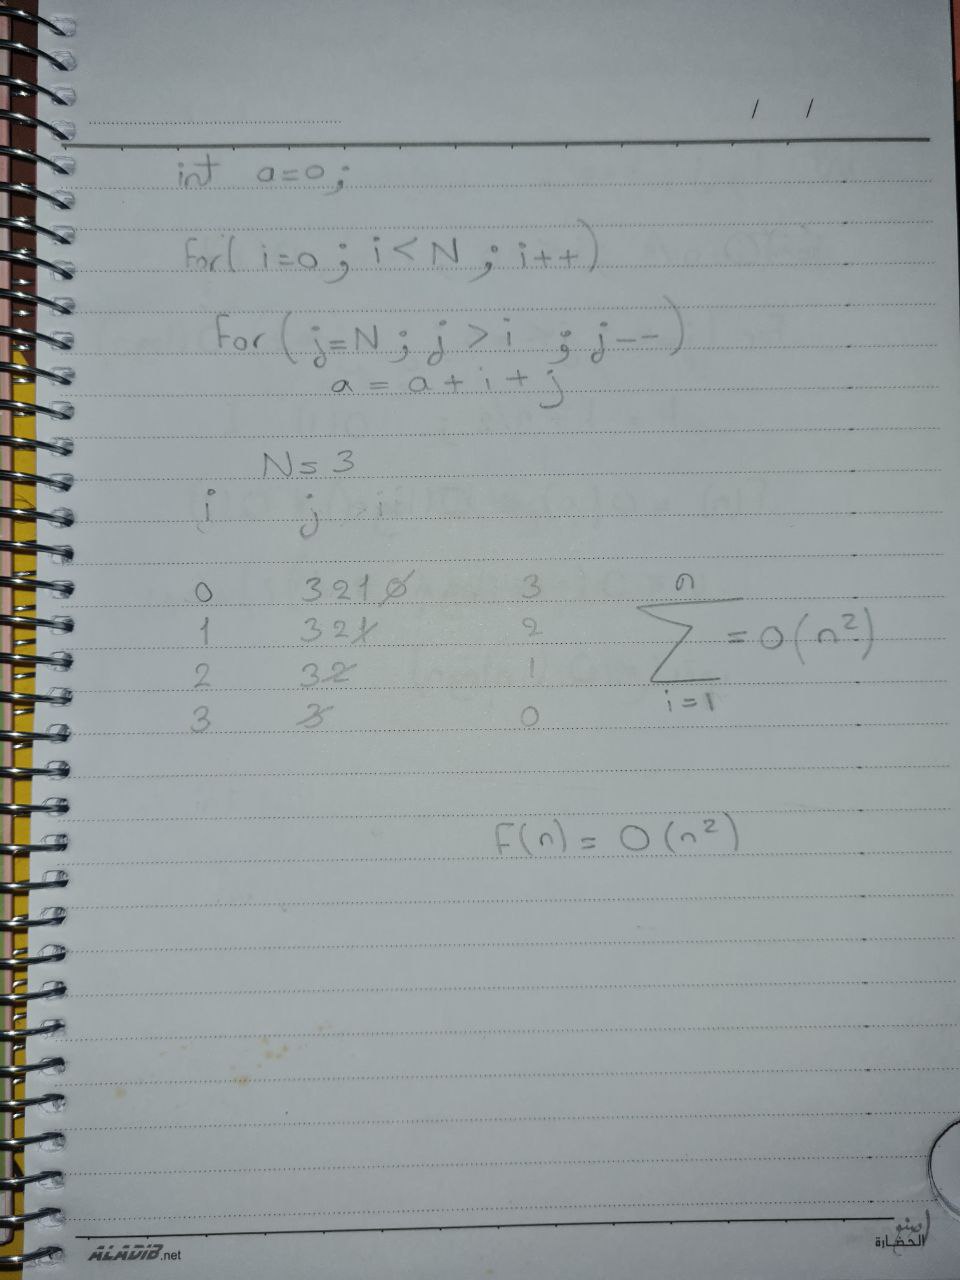 / /
int a=0;
For( i=0 ; i<N ; i++)
For (j=N ; j>i ; j--)
a = a + i + j
N=3
i j>i
0 3 2 1 0 3
1 3 2 1 2
2 3 2 1
3 3 0
n
∑ = O(n²)
i=1
F(n) = O(n²)
ALADIB.net
الحضارة